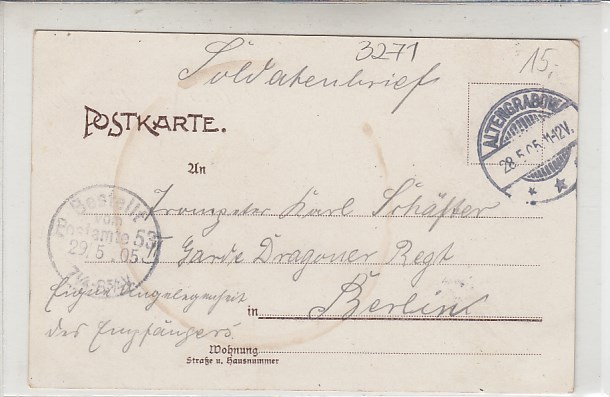 3271
15,-
Soldatenbrief
POSTKARTE.
ALTENGRABOW
28.5.05.11-12V.
An
Trompeter Karl Schäffer
Bestellt
vom
Postamte 53
29.5.05
Garde Dragoner Regt
Eigene Angelegenheit
in Berlin
des Empfängers.
Wohnung
Straße u. Hausnummer